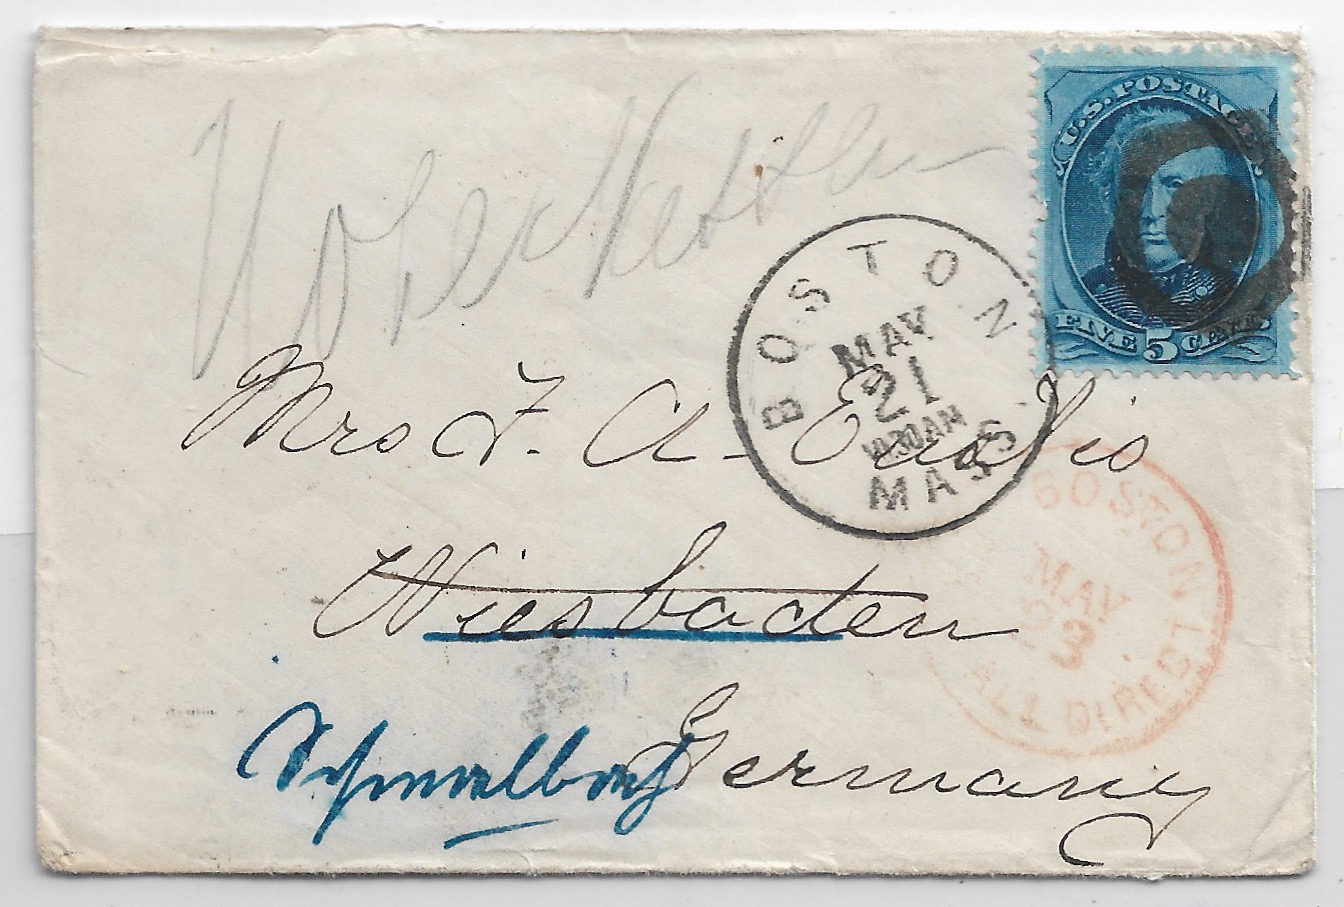 U.S. POSTAGE
FIVE 5 CENTS
BOSTON
MAY
21
MASS
Mrs F. A. Eustis
BOSTON
MAY
23
ALL DIRECT
Wiesbaden
Schwalbach
Germany